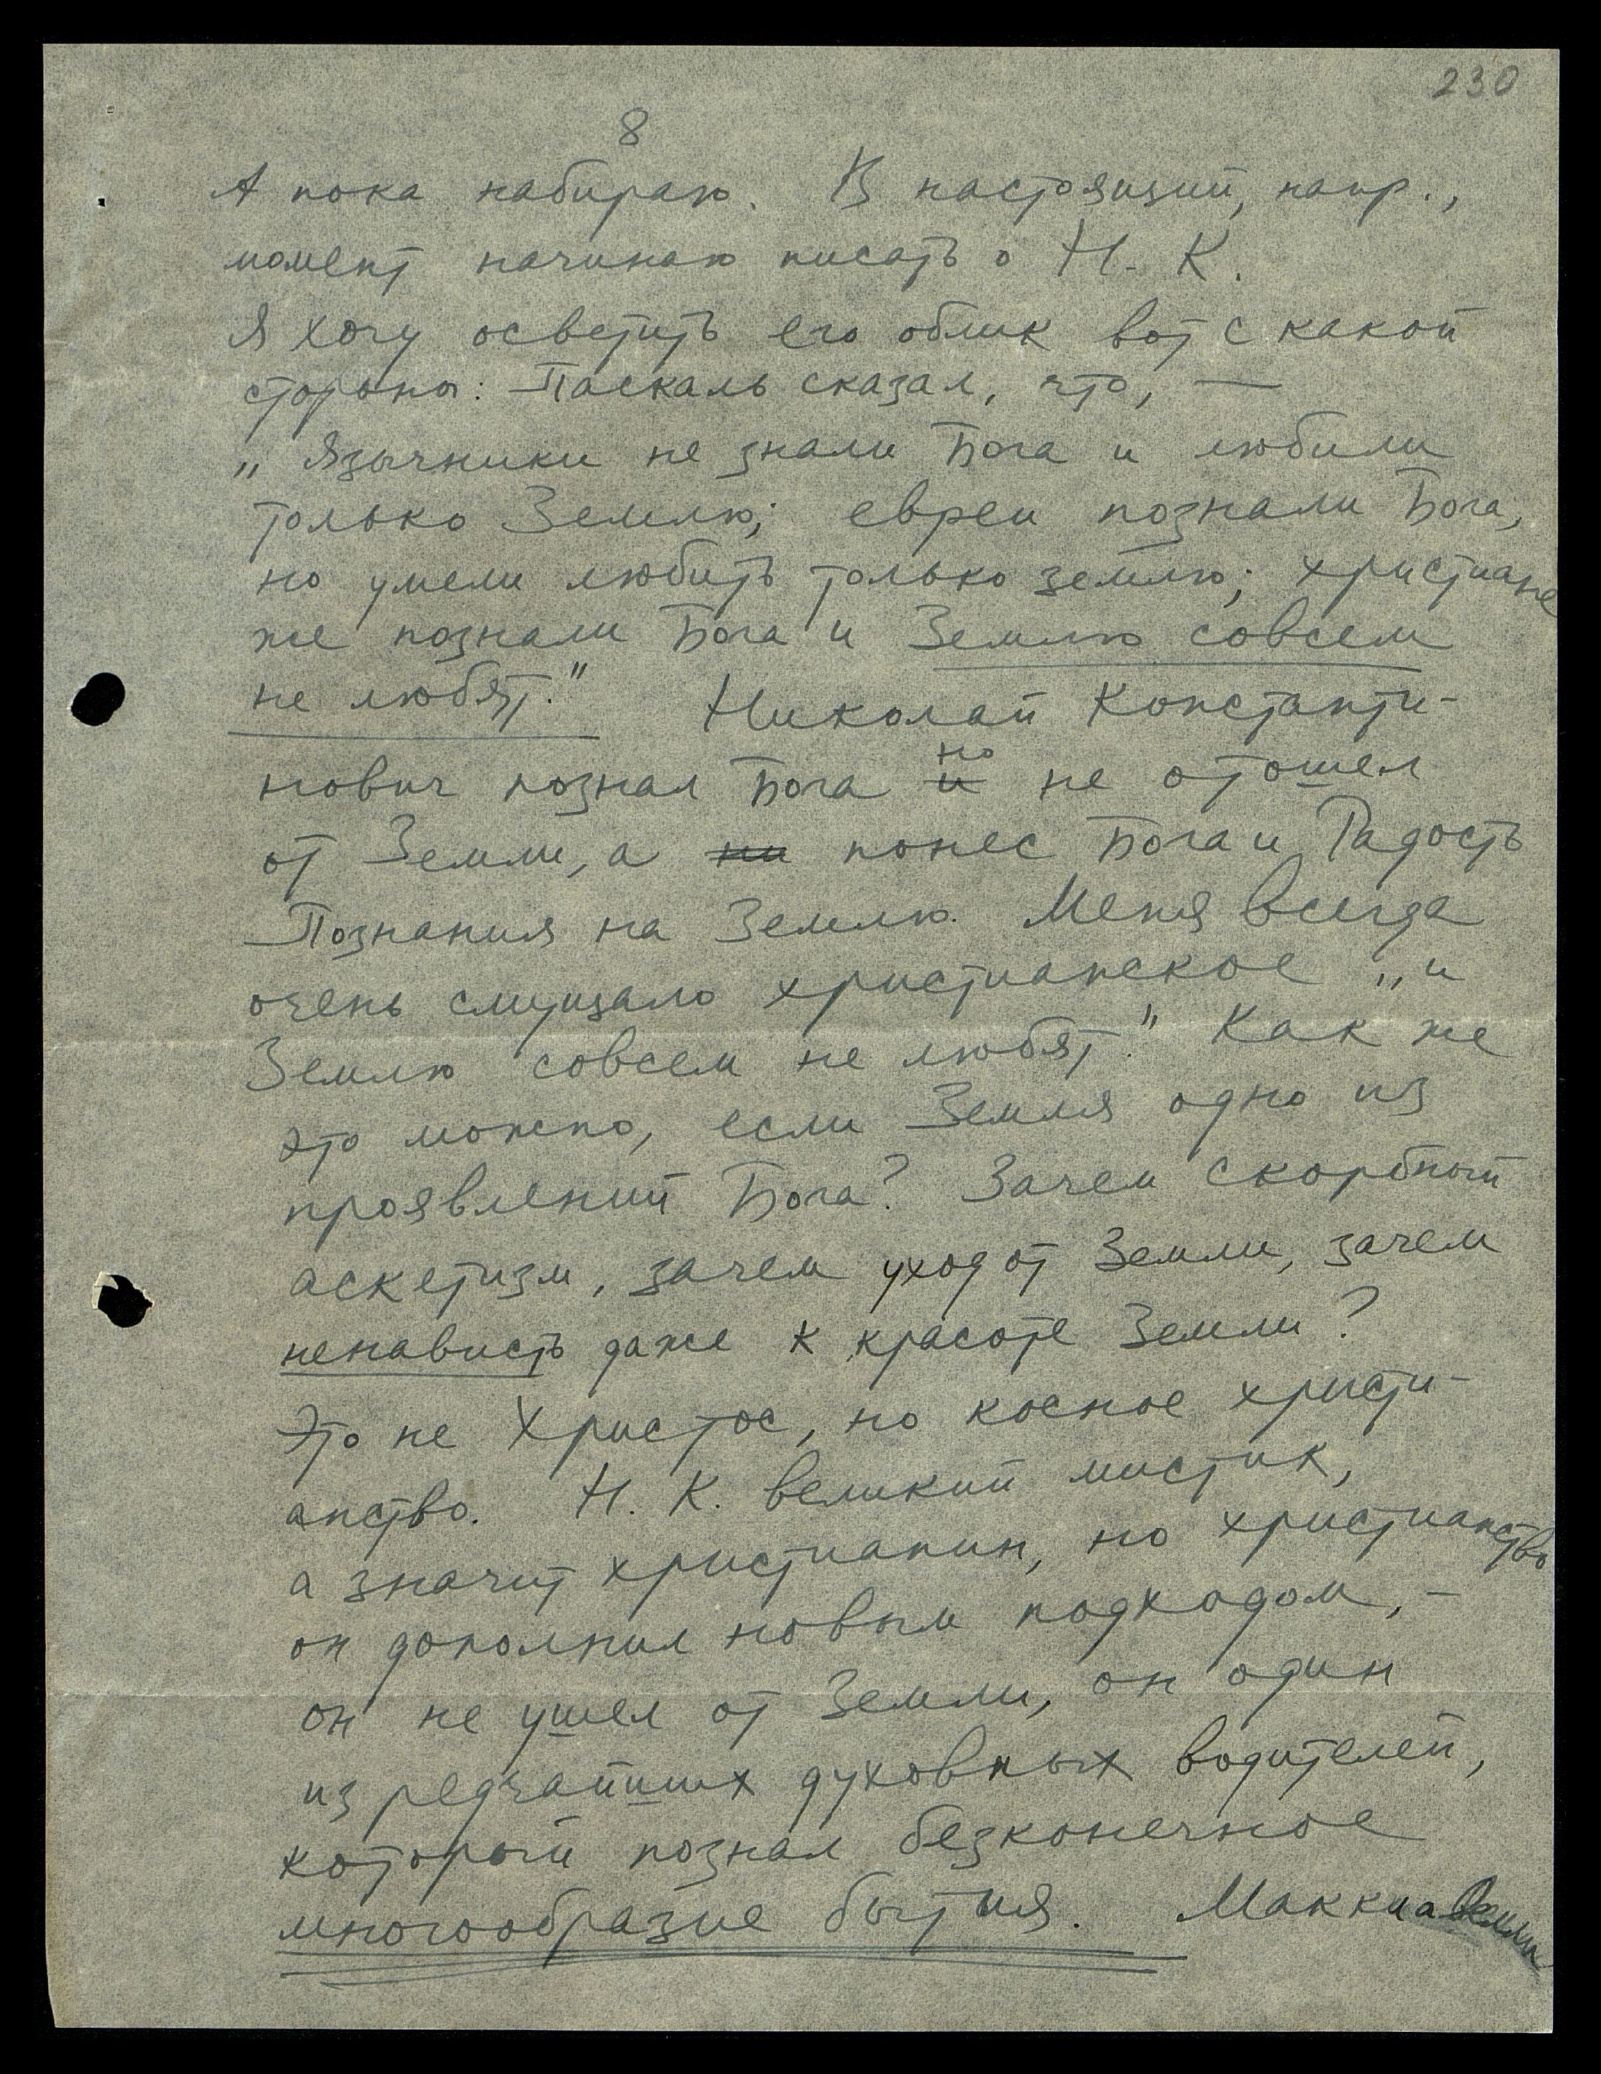 230
8
А пока набираю. В настоящий, напр.,
момент начинаю писать о Н. К.
Я хочу осветить его облик вот с какой
стороны: Паскаль сказал, что, —
„Язычники не знали Бога и любили
только Землю; евреи познали Бога,
но умели любить только землю; христиане
же познали Бога и Землю совсем
не любят." Николай Константи-
нович познал Бога и но не отошел
от Земли, а понес Бога и Радость
Познания на Землю. Меня всегда
очень смущало христианское „и
Землю совсем не любят." Как же
это можно, если Земля одно из
проявлений Бога? Зачем скорбный
аскетизм, зачем уход от Земли, зачем
ненависть даже к красоте Земли?
Это не Христос, но косное христи-
анство. Н. К. великий мистик,
а значит христианин, но христианство
он дополнил новым подходом, –
он не ушел от Земли, он один
из редчайших духовных водителей,
который познал безконечное
многообразие бытия. Маккиавелли